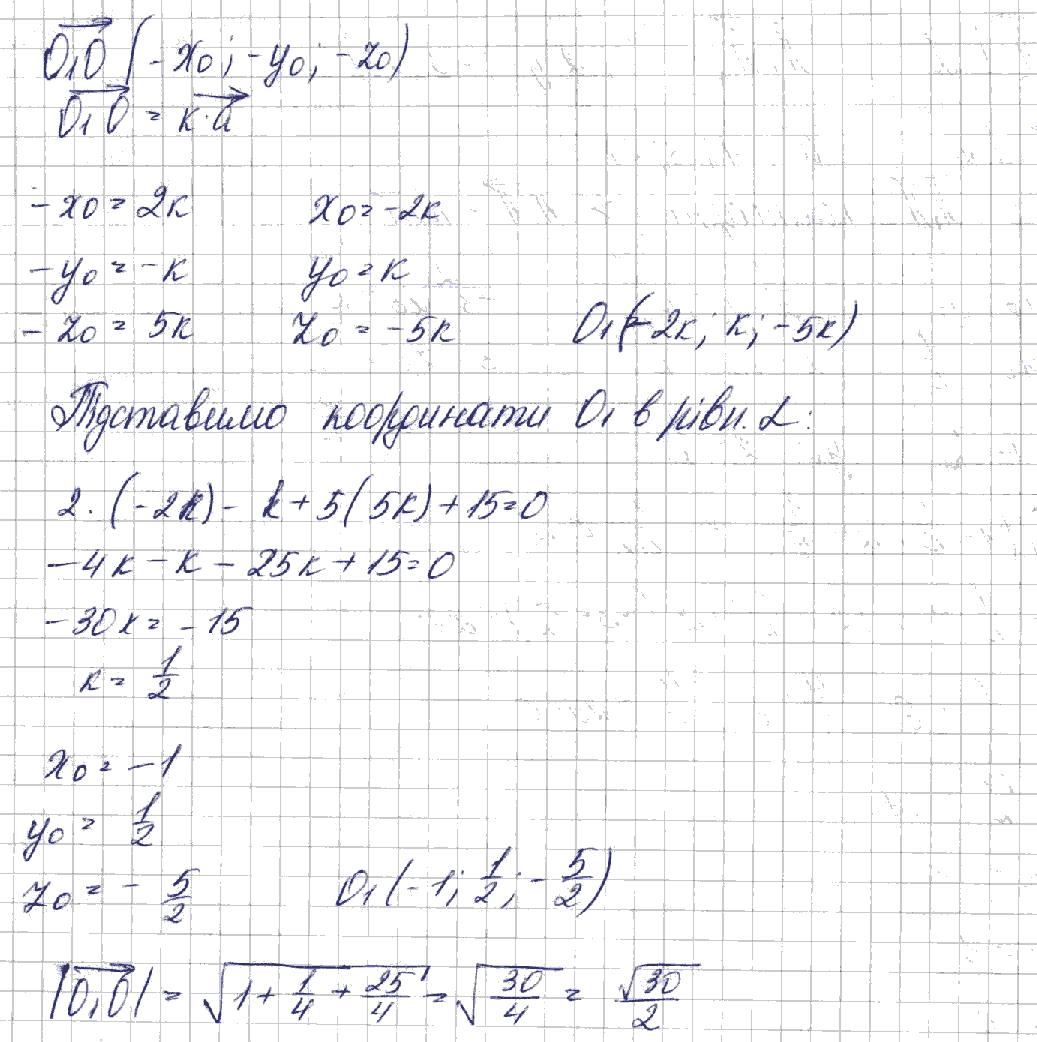 O₁O (-x₀; -y₀; -z₀)
O₁O = к·a
-x₀ = 2к x₀ = -2к
-y₀ = -к y₀ = к
-z₀ = 5к z₀ = -5к O₁(-2к; к; -5к)
Підставимо координати O₁ в рівн. L:
2·(-2к) - к + 5(5к) + 15 = 0
-4к - к - 25к + 15 = 0
-30к = -15
к = 1/2
x₀ = -1
y₀ = 1/2
z₀ = -5/2 O₁(-1; 1/2; -5/2)
|O₁O| = √(1 + 1/4 + 25/4) = √(30/4) = √30/2